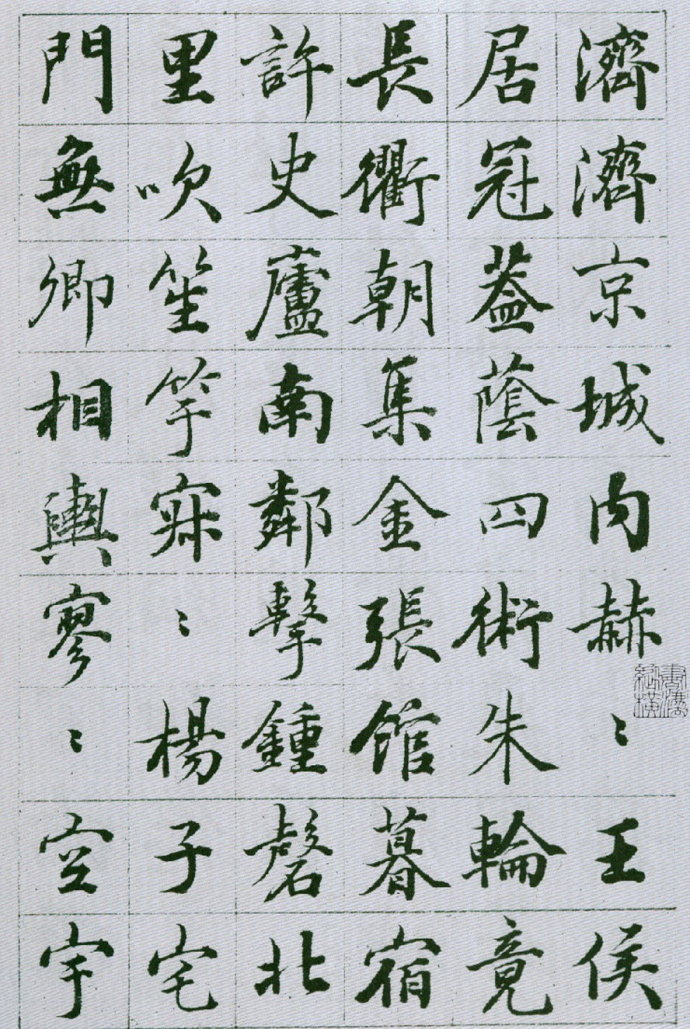 濟濟京城內赫〻王侯
居冠蓋蔭四術朱輪竟
長衢朝集金張館暮宿
許史廬南鄰擊鍾磬北
里吹笙竽寂〻楊子宅
門無卿相輿寥〻空宇
書法
縱橫